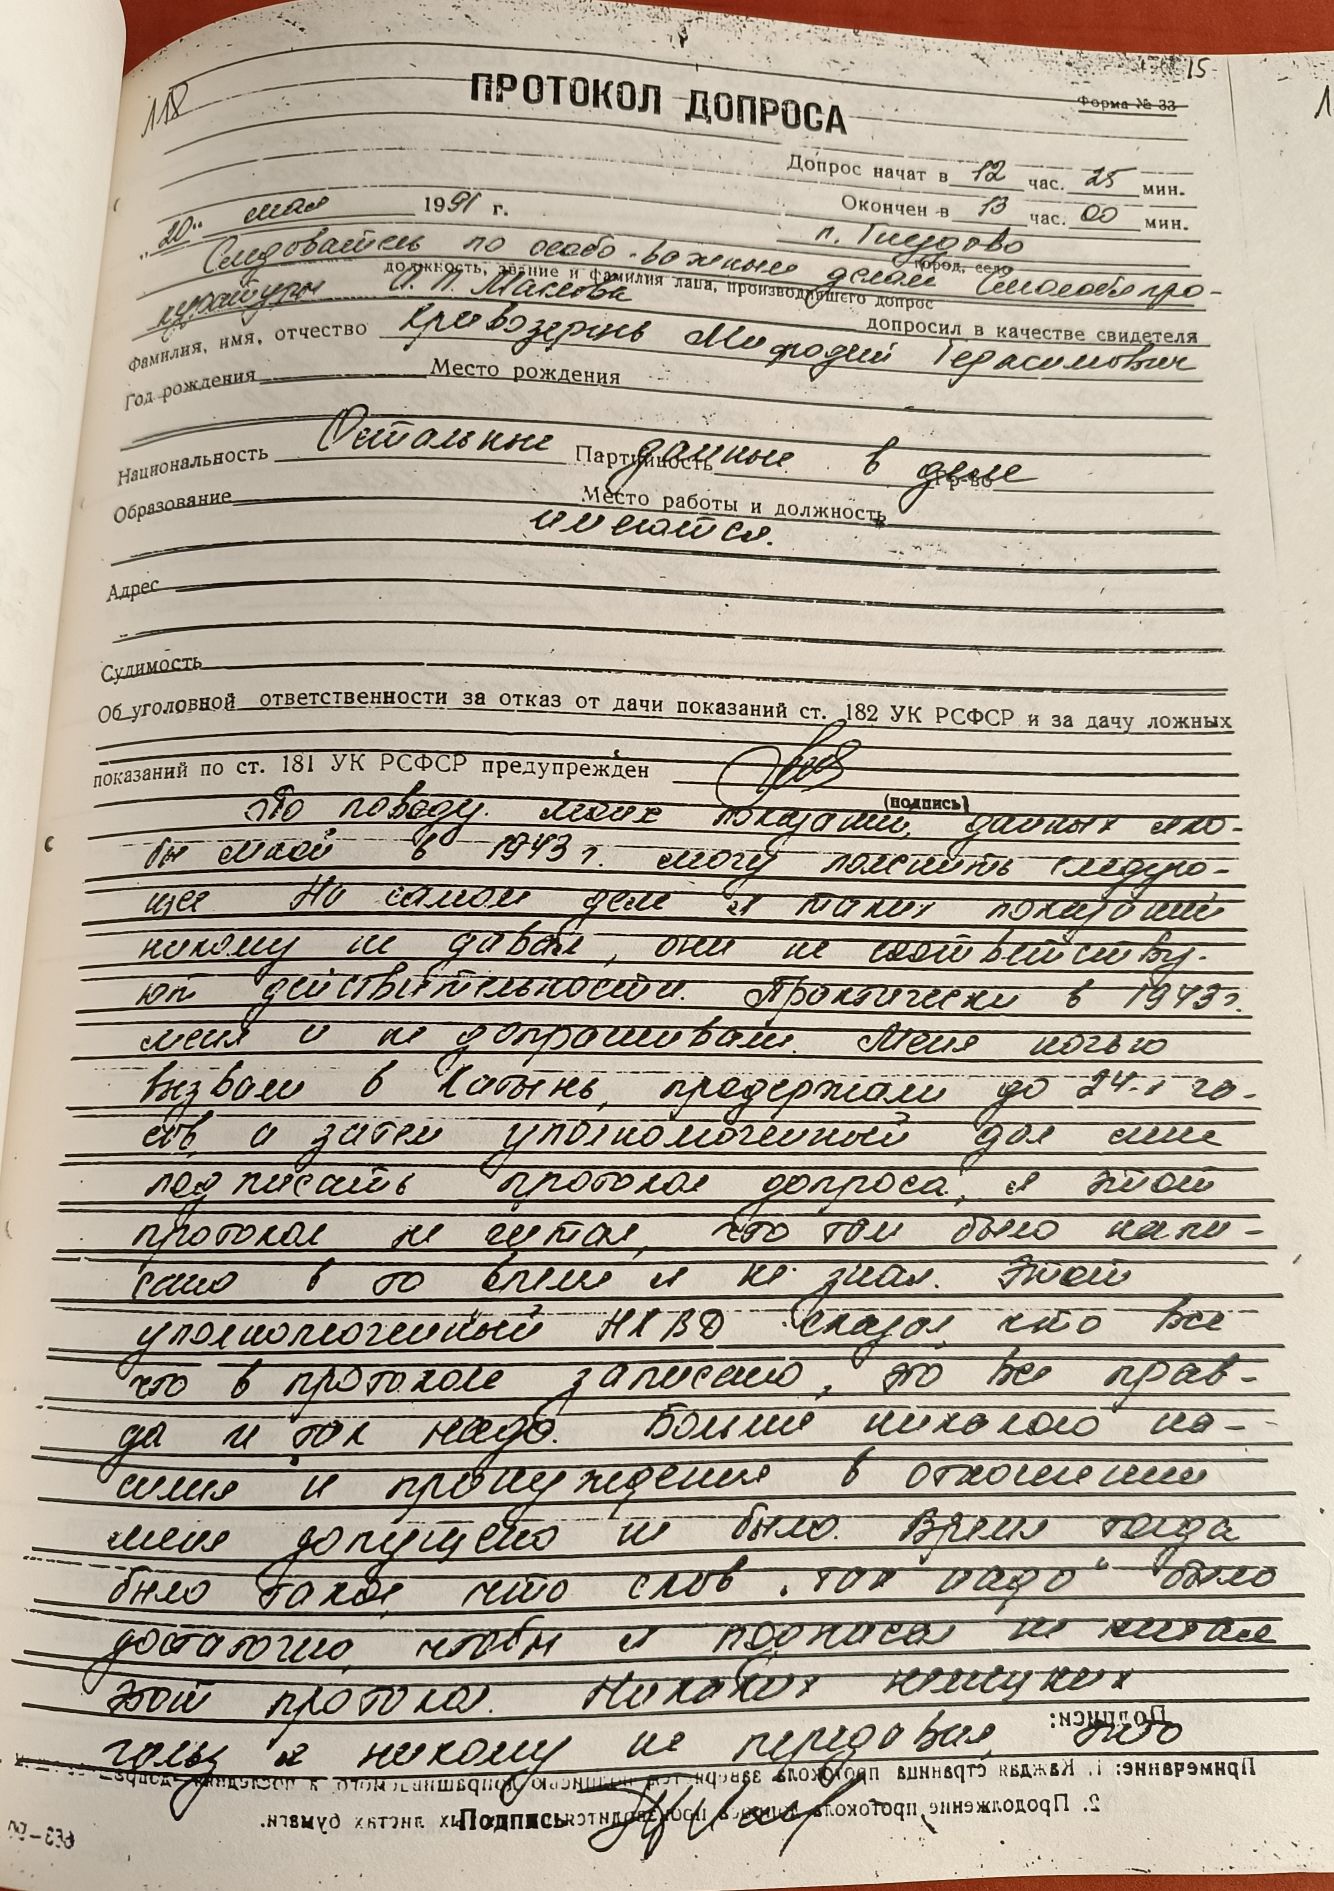 15
118
Форма № 33
ПРОТОКОЛ ДОПРОСА
Допрос начат в 12 час. 25 мин.
Окончен в 13 час. 00 мин.
„20“ мая 1991 г.
п. Гнездово
город, село
Следователь по особо-важным делам Смолоблпро-
должность, звание и фамилия лица, производившего допрос
куратуры
допросил в качестве свидетеля
Фамилия, имя, отчество Кривозерцев Мифодий Герасимович
Год рождения Место рождения
Национальность Остальные Партийность данные в деле Гр-во
Образование Место работы и должность
имеются.
Адрес
Судимость
Об уголовной ответственности за отказ от дачи показаний ст. 182 УК РСФСР и за дачу ложных
показаний по ст. 181 УК РСФСР предупрежден
(подпись)
По поводу моих показаний, данных яко-
бы мной в 1943 г. могу пояснить следую-
щее На самом деле я таких показаний
никому не давал, они не соответству-
ют действительности. Практически в 1943 г.
меня и не допрашивали. Меня ночью
вызвали в Катынь, продержали до 24-х ча-
сов, а затем уполномоченный дал мне
подписать протокол допроса, я этот
протокол не читал, что там было напи-
сано в то время я не знал. Этот
уполномоченный НКВД сказал, что все
что в протоколе записано, это все прав-
да и так надо. Больше никакого на-
силия и принуждения в отношении
меня допущено не было. Время тогда
было такое, что слов „так надо“ было
достаточно, чтобы я подписал не читая
этот протокол. Никаких немецких
гильз я никому не передавал, что
Подписи:
Примечание: 1. Каждая страница протокола заверяется подписью допрашиваемого и последняя допра-
2. Продолжение протокола допроса производится на листах бумаги.
Подпись